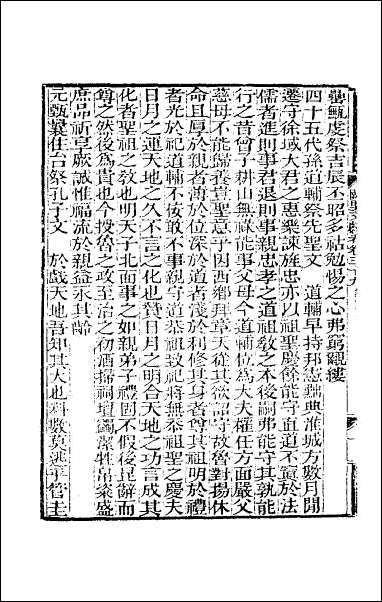 罍甒虔祭吉辰丕昭多祜勉惕之心弗窮覼縷
四十五代孫道輔祭先聖文　道輔早持邦憲難典淮城方數月間
遷守徐域大君之惠樂諫旌忠亦以祖聖慶餘能守直道不賓於法
儒者進則事君退則事親忠孝之道祖敎之本後嗣弗能守其孰能
行之昔曾子耕山無祿能事父母今道輔位爲大夫權任方面嚴父
慈母不能歸養違聖意乎因西鄕拜章天從其欲詔守故魯對揚休
命且厚於親者薄於位深於道者淺於利修其身者尊其祖明於禮
者光於祀道輔不佞敢不事親守道恭祖致祀將無忝祖聖之慶夫
日月之運天地之久不言之化也贊日月之明合天地之功言成其
化者聖祖之敎也明天子北面事之如親弟子禮固不假後昆僻而
尊之然後爲貴也今授魯之政至治之初酒掃祠壇蠲潔牲帛粢盛
庶品祈享厥誠惟福流於親益永其齡
元甄囊住台祭孔子文　於戲天地吾知其大也科數莫逃乎管圭